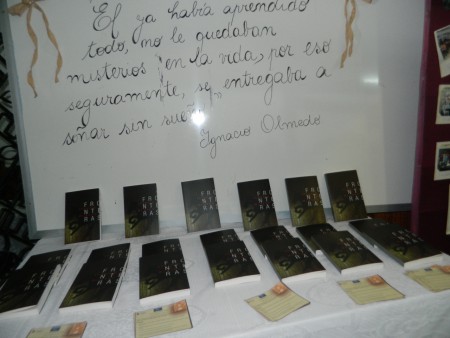 "Él ya había aprendido
todo, no le quedaban
misterios en la vida, por eso
seguramente, se entregaba a
soñar sin sueño"
Ignacio Olmedo
FRO
NTE
RA